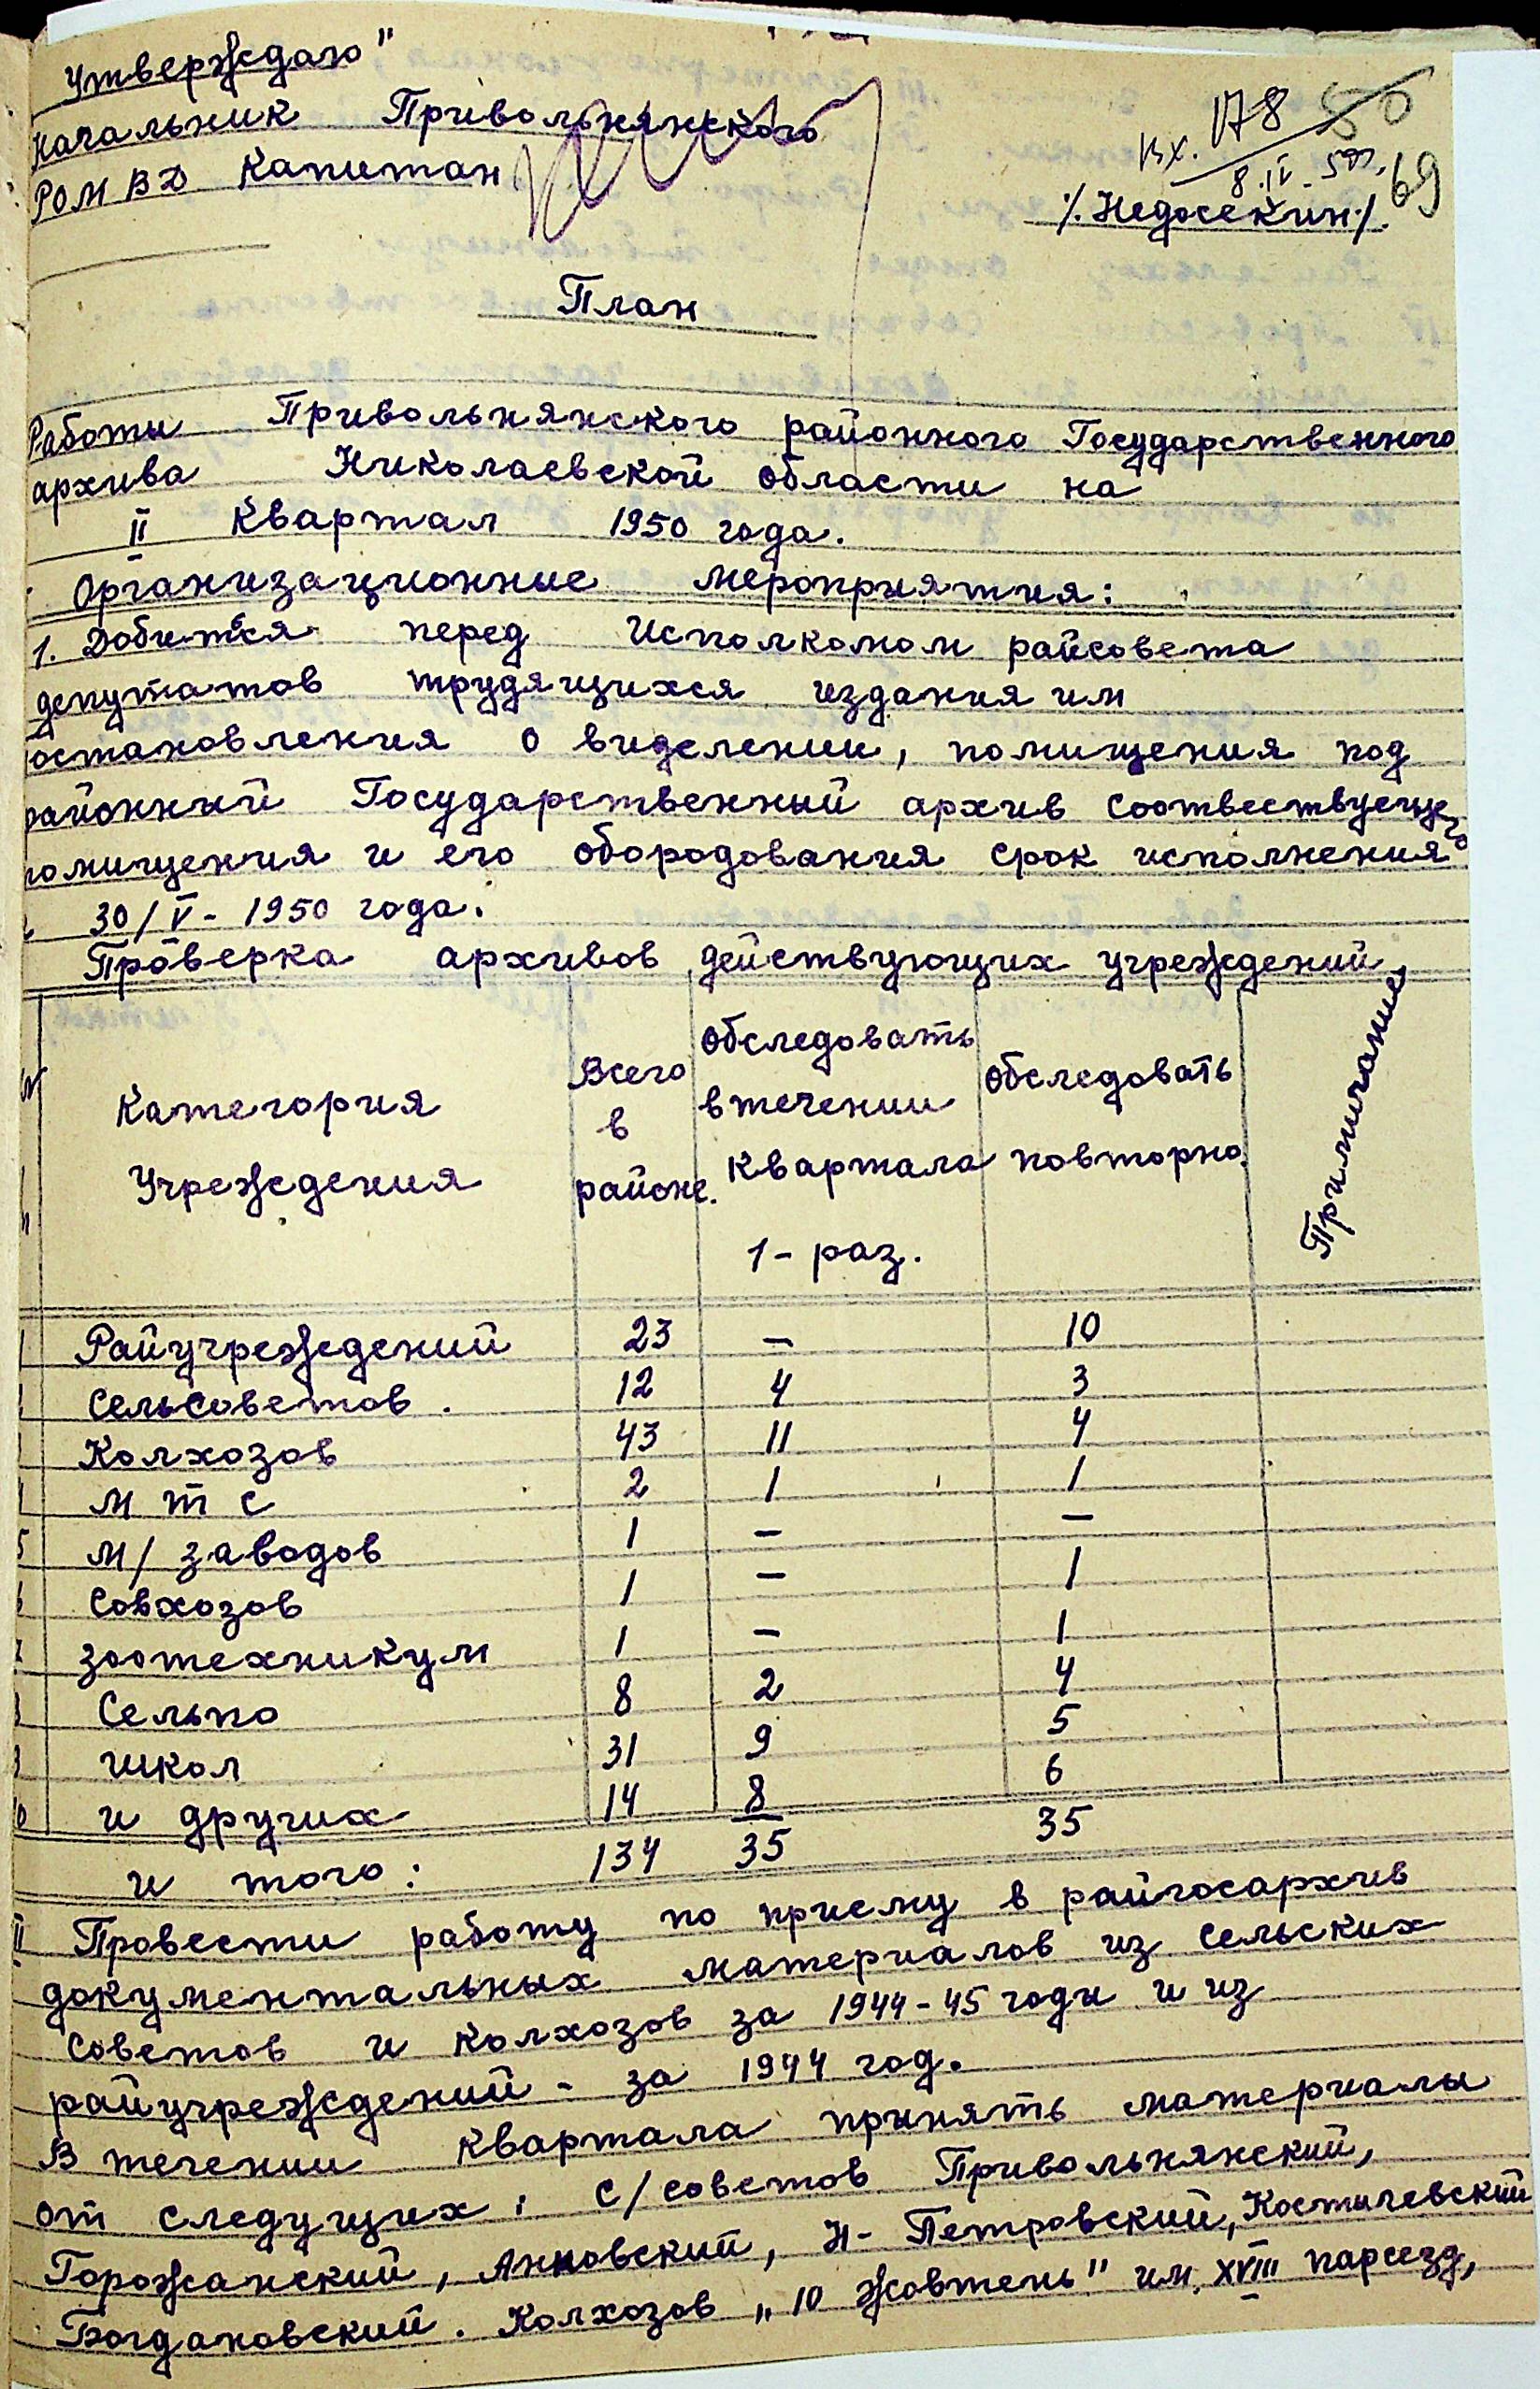 Утверждаю"
Начальник Привольнянского
РОМВД Капитан
Вх. 178
8.IV-50г.
50
69
/.Недосекин./.
План
Работы Привольнянского районного Государственного
архива Николаевской области на
II квартал 1950 года.
Организационные мероприятия:
1. Добиться перед Исполкомом райсовета
депутатов трудящихся издания им
остановления о виделении, помищения под
районный Государственный архив соотвествующего
помищения и его обородования срок исполнения
30/V-1950 года.
Проверка архивов действующих учреждений,
Категория Учреждения
Всего в районе.
Обследовать в течении квартала 1-раз.
Обследовать повторно.
Примичание
1 Райучреждений 23 – 10
Сельсоветов. 12 4 3
Колхозов 43 11 4
М Т С 2 1 1
5 М/заводов 1 – –
6 Совхозов 1 – 1
7 зоотехникум 1 – 1
8 Сельпо 8 2 4
9 Школ 31 9 5
10 и других 14 8 6
и того: 134 35 35
II Провести работу по приему в райгосархив
документальных материалов из сельских
советов и колхозов за 1944-45 годы и из
райучреждений - за 1944 год.
В течении квартала принять материалы
от следущих: с/советов Привольнянский,
Горожанский, Анновский, Н-Петровский, Костычевский
Богдановский. Колхозов „10 Жовтень" им. XVIII парсезд,